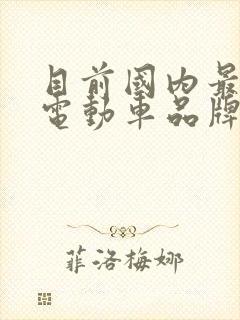 目前國內最
電動車品牌
菲洛梅娜